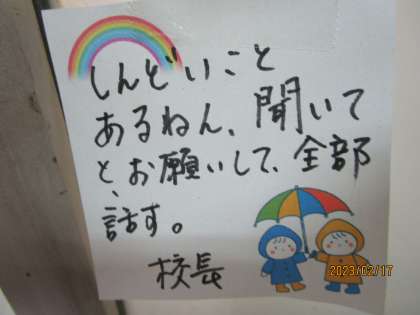 しんどいこと
あるねん、聞いて
と、お願いして、全部
話す。
校長
2023/02/17